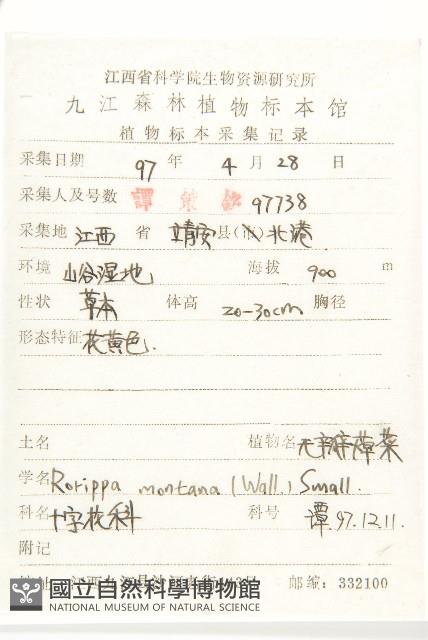 江西省科学院生物资源研究所
九江森林植物标本馆
植物标本采集记录
采集日期 97 年 4 月 28 日
采集人及号数 譚策銘 97738
采集地 江西 省 靖安 县(市) 北港
环境 山谷湿地 海拔 900 m
性状 草本 体高 20-30cm 胸径
形态特征 花黄色.
土名 植物名 无瓣蔊菜
学名 Rorippa montana (Wall.) Small.
科名 十字花科 科号 谭.97.12.11.
附记
邮编: 332100
國立自然科學博物館
NATIONAL MUSEUM OF NATURAL SCIENCE